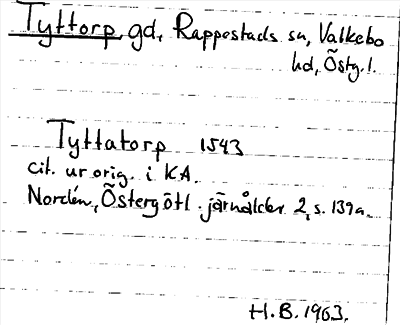 Tyttorp, gd, Rappestads sn, Valkebo
hd, Östg. l.
Tyttatorp 1543
cit. ur orig. i KA.
Nordén, Östergötl. järnålder 2, s. 139 a.
H.B. 1963.